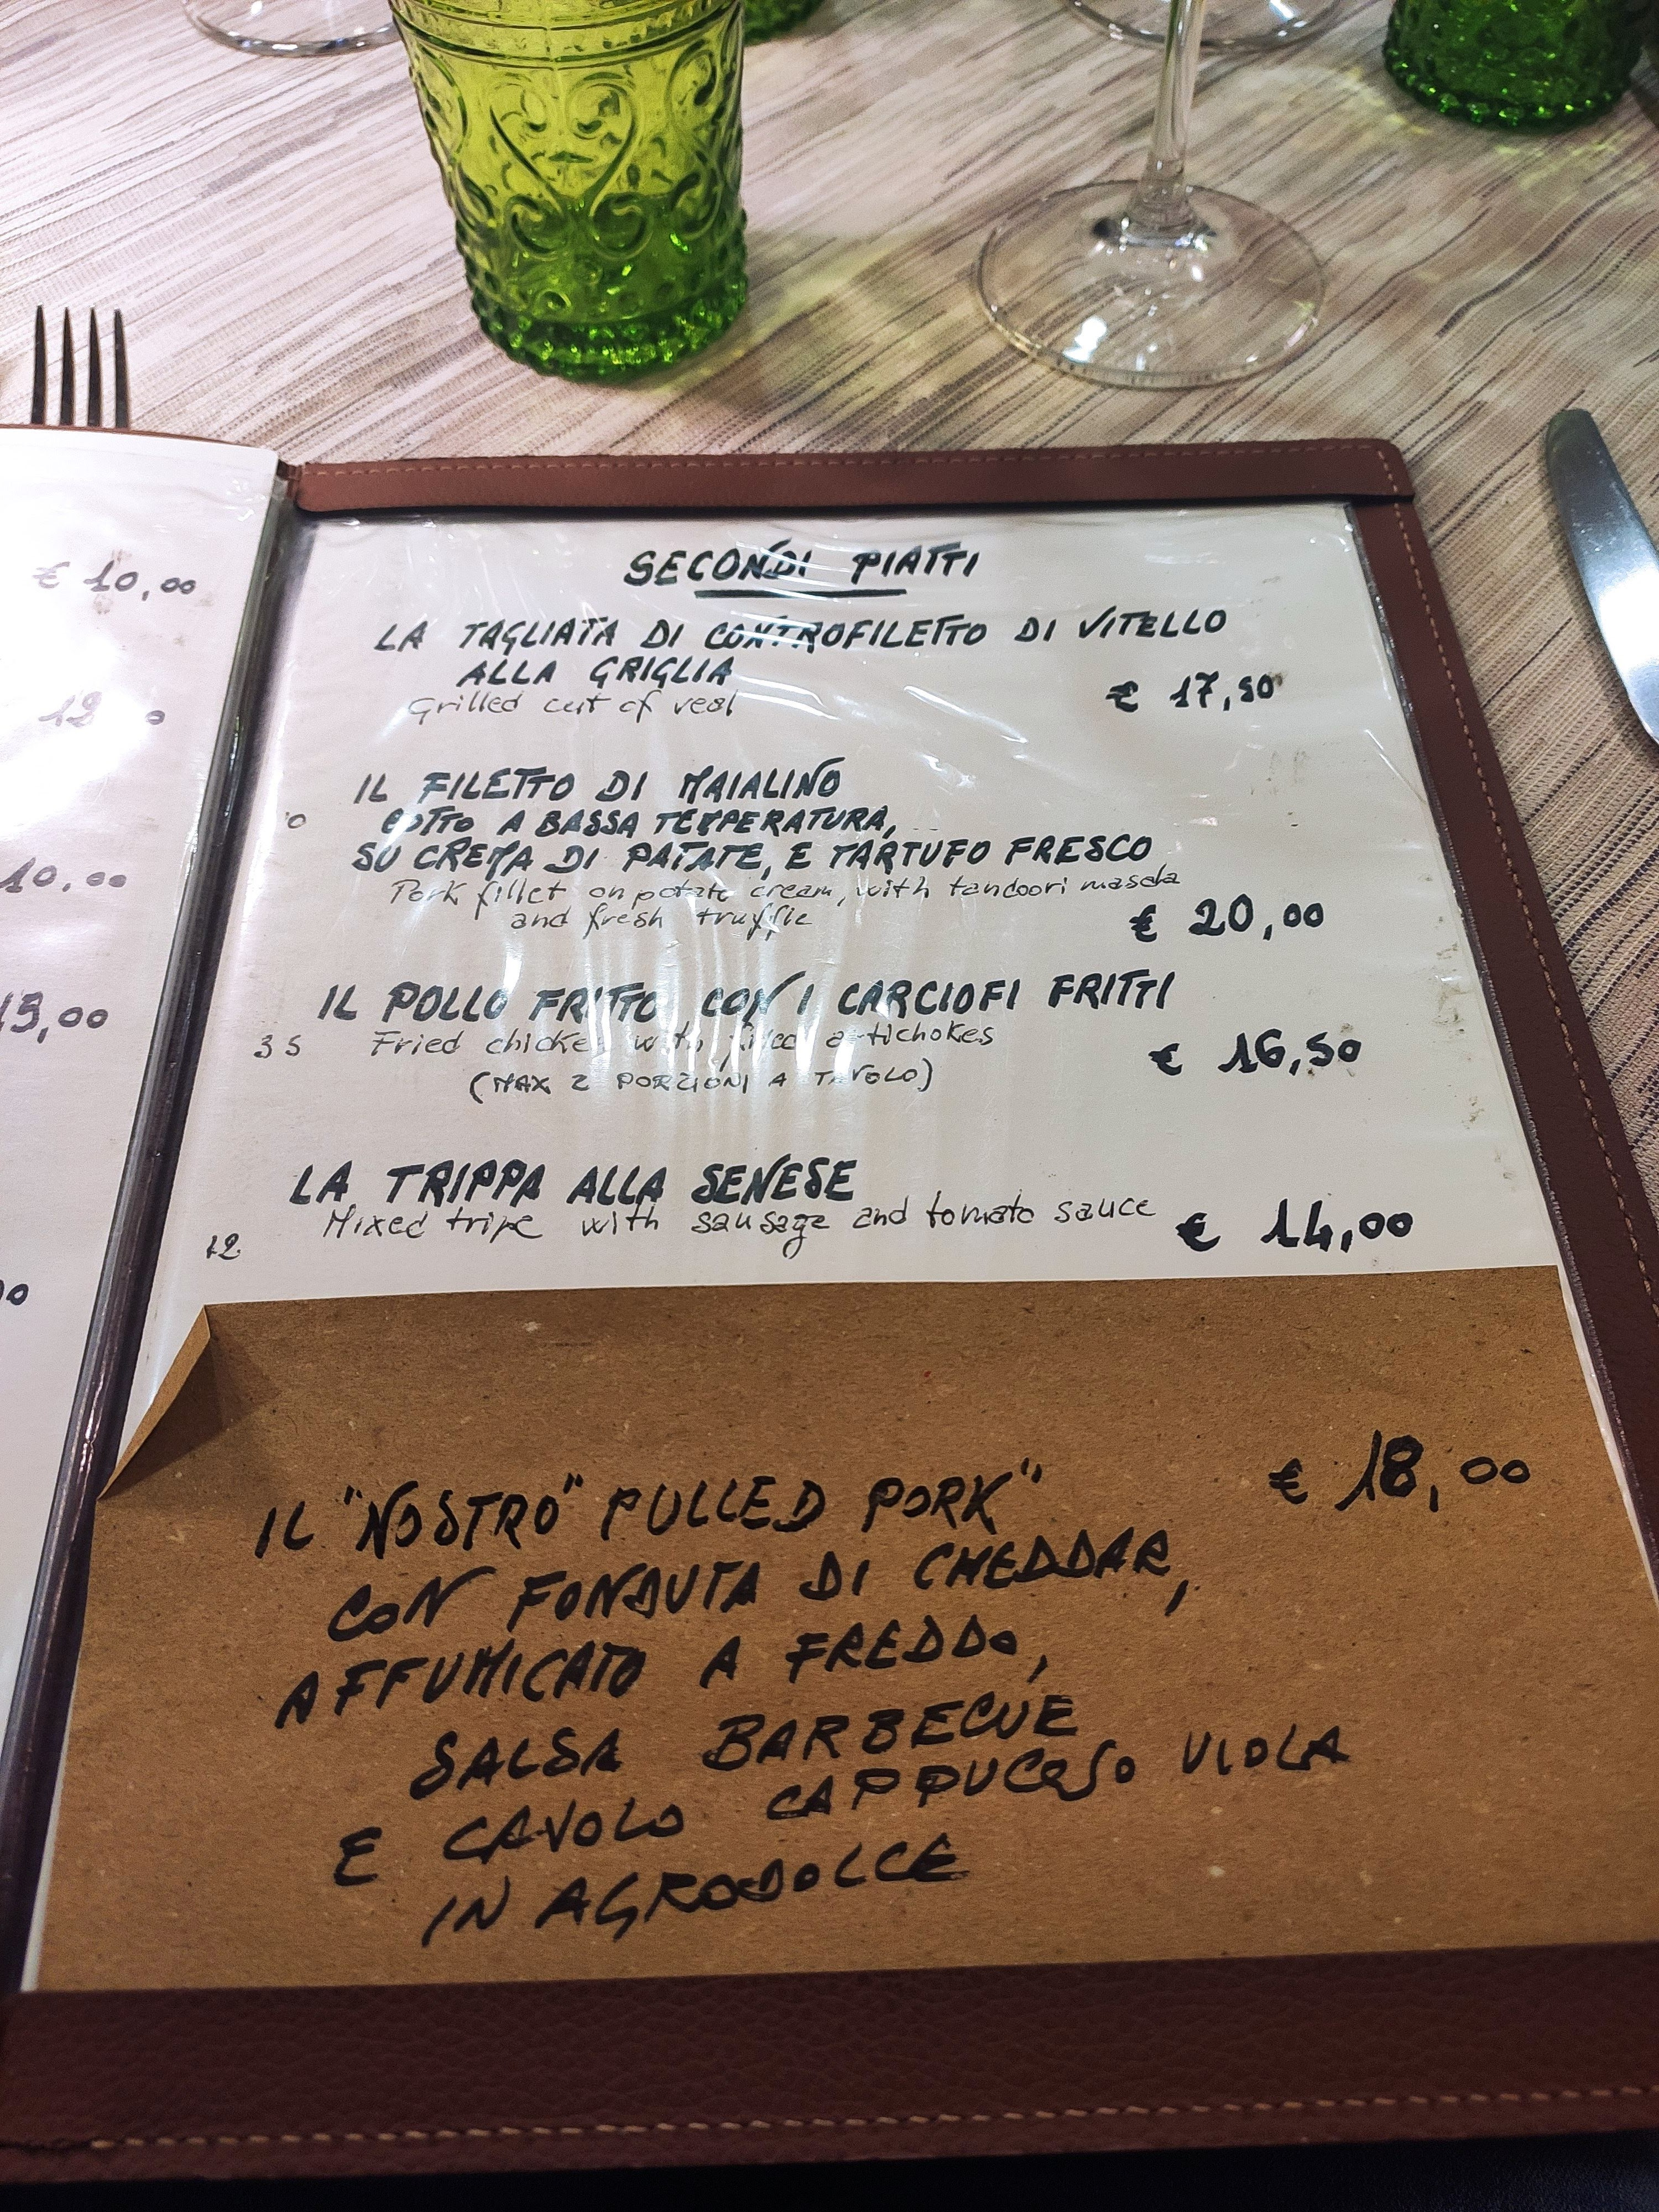 € 10,00
10,00
SECONDI PIATTI
LA TAGLIATA DI CONTROFILETTO DI VITELLO
ALLA GRIGLIA
Grilled cut of veal
€ 17,50
IL FILETTO DI MAIALINO
COTTO A BASSA TEMPERATURA,
SU CREMA DI PATATE, E TARTUFO FRESCO
Pork fillet on potate cream, with tandoori masala
and fresh truffle
€ 20,00
IL POLLO FRITTO CON I CARCIOFI FRITTI
35 Fried chicken with fried artichokes
€ 16,50
(MAX 2 PORZIONI A TAVOLO)
LA TRIPPA ALLA SENESE
Mixed tripe with sausage and tomato sauce
€ 14,00
12
IL "NOSTRO" PULLED PORK"
€ 18,00
CON FONDUTA DI CHEDDAR,
AFFUMICATO A FREDDO,
SALSA BARBECUE
E CAVOLO CAPPUCCSO VIOLA
IN AGRODOLCE